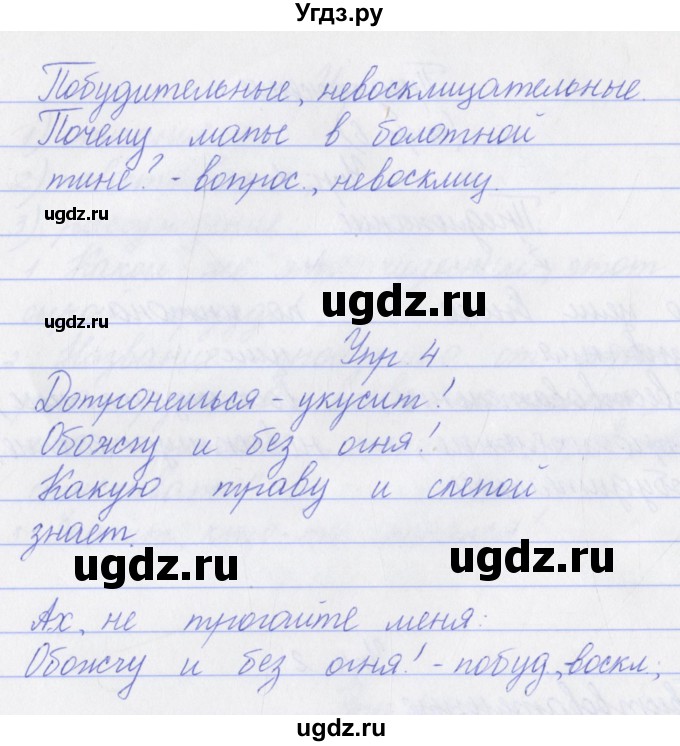 Угдз.ру
Побудительные, невосклицательные.
Почему мапы в болотной
тине? - вопрос., невосклиц.
ugdz.ru
ugdz.ru
ugdz.ru
Упр. 4
Дотронешься - укусит!
Обожгу и без огня!
Какую траву и слепой
знает.
ugdz.ru
ugdz.ru
Ах, не трогайте меня:
Обожгу и без огня! - побуд., воскл.,
ugdz.ru